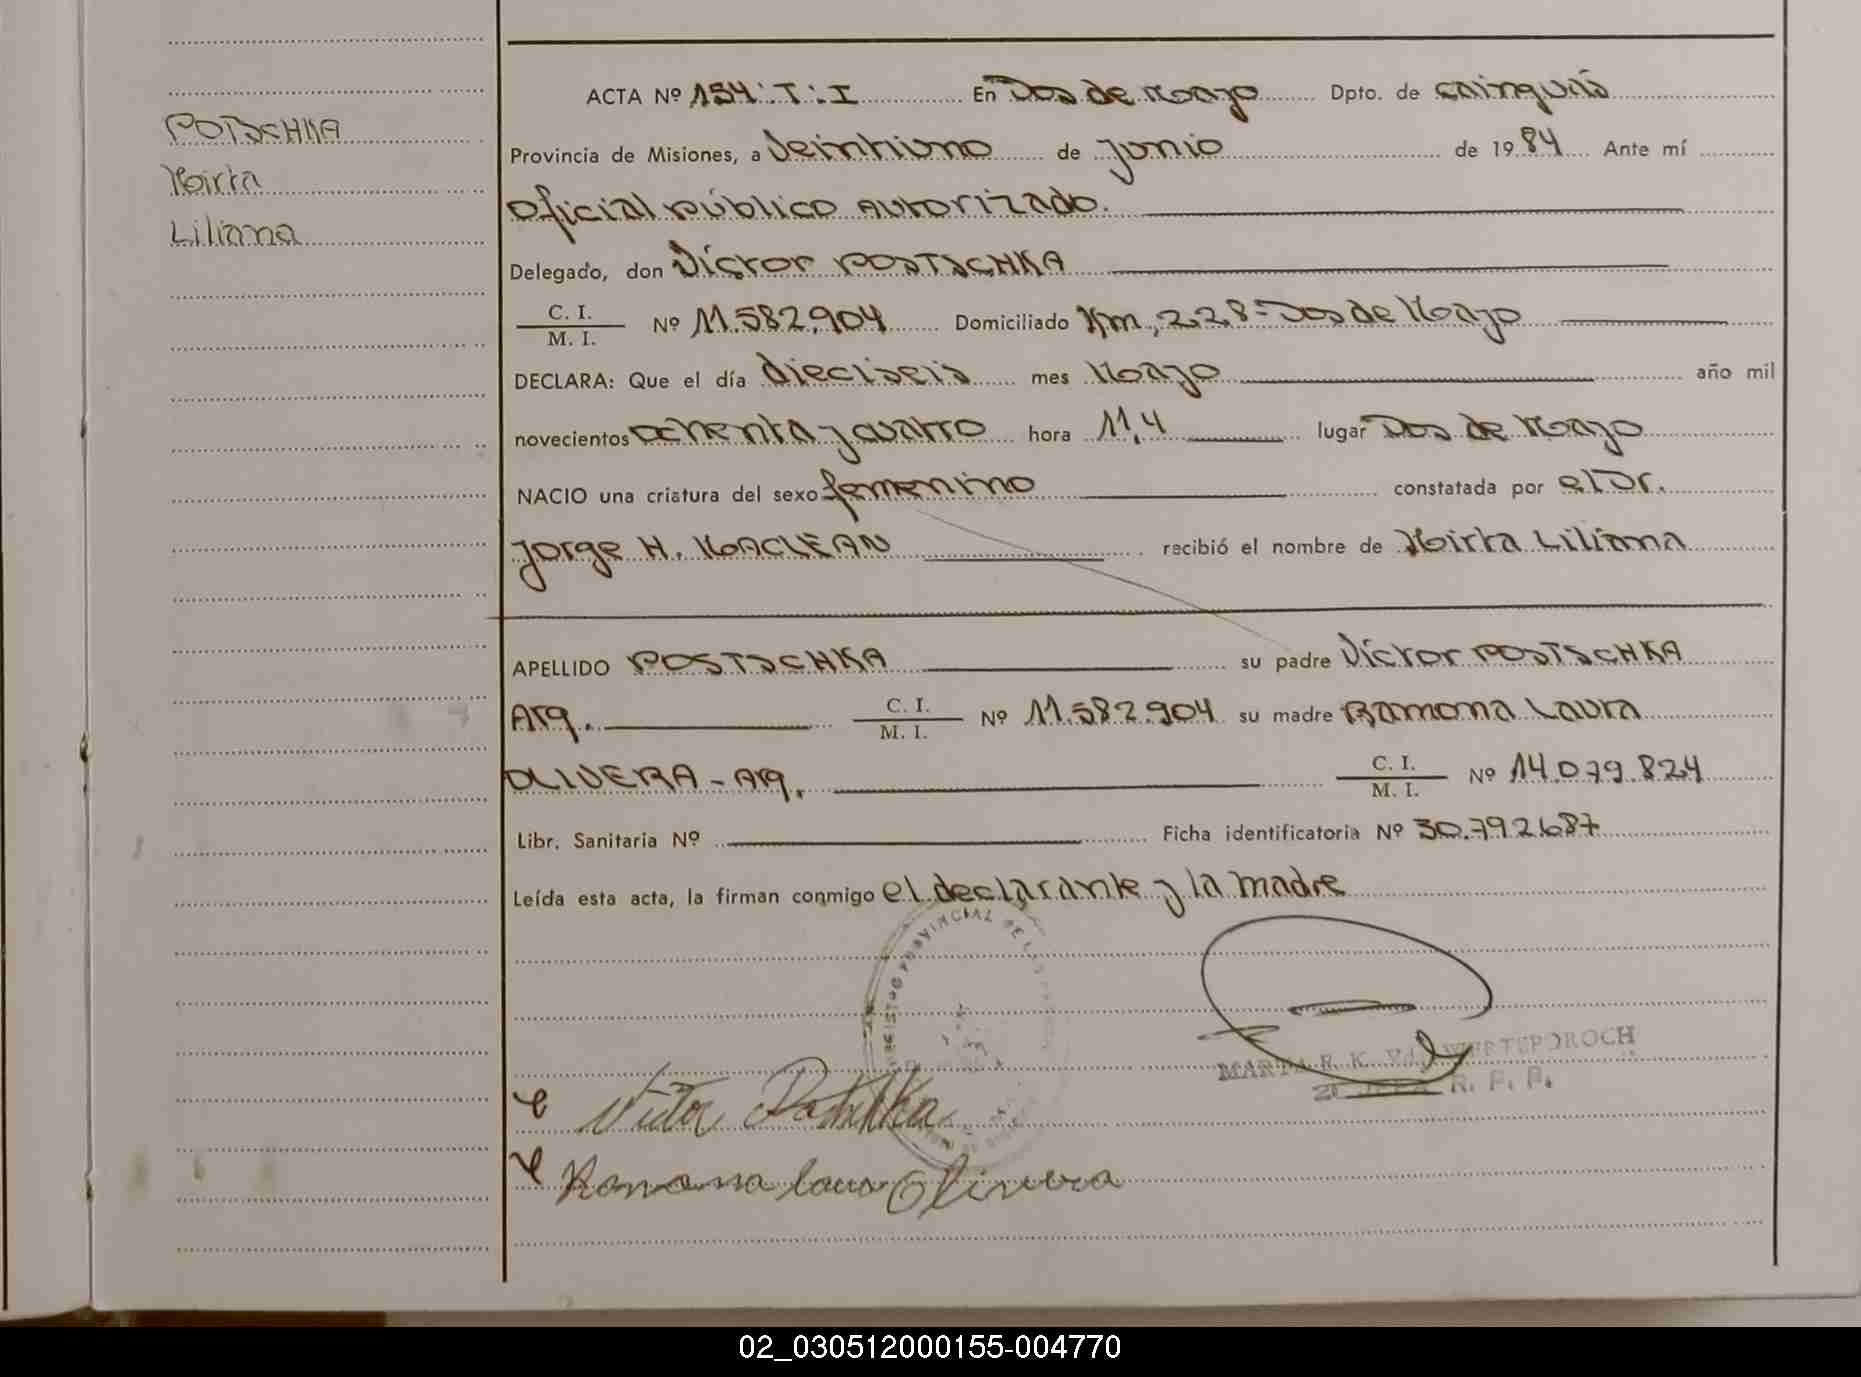 POTSCHKA
Mirta
Liliana
ACTA Nº 154:T:I En Dos de Mayo Dpto. de Cainguás
Provincia de Misiones, a Veintiuno de junio de 1984 Ante mí
oficial público Autorizado.
Delegado, don Víctor POSTSCHKA
C. I.
M. I.
Nº 11.582.904 Domiciliado Km, 228=Dos de Mayo
DECLARA: Que el día dieciseis mes Mayo año mil
novecientos ochenta y cuatro hora 11,4 lugar Dos de Mayo
NACIO una criatura del sexo femenino constatada por el Dr.
Jorge H. MACLEAN recibió el nombre de Mirta Liliana
APELLIDO POSTSCHKA su padre Víctor POSTSCHKA
Arg. C. I.
M. I. Nº 11.582.904 su madre Ramona Laura
OLIVERA - Arg. C. I.
M. I. Nº 14.079.824
Libr. Sanitaria Nº Ficha identificatoria Nº 30.792.687
Leída esta acta, la firman conmigo el declarante y la madre
REGISTRO PROVINCIAL DE
MARTA R. K. WERTEPOROCH
2º JEFA R. P. P.
Victor
Ramona Laura Olivera
02_030512000155-004770